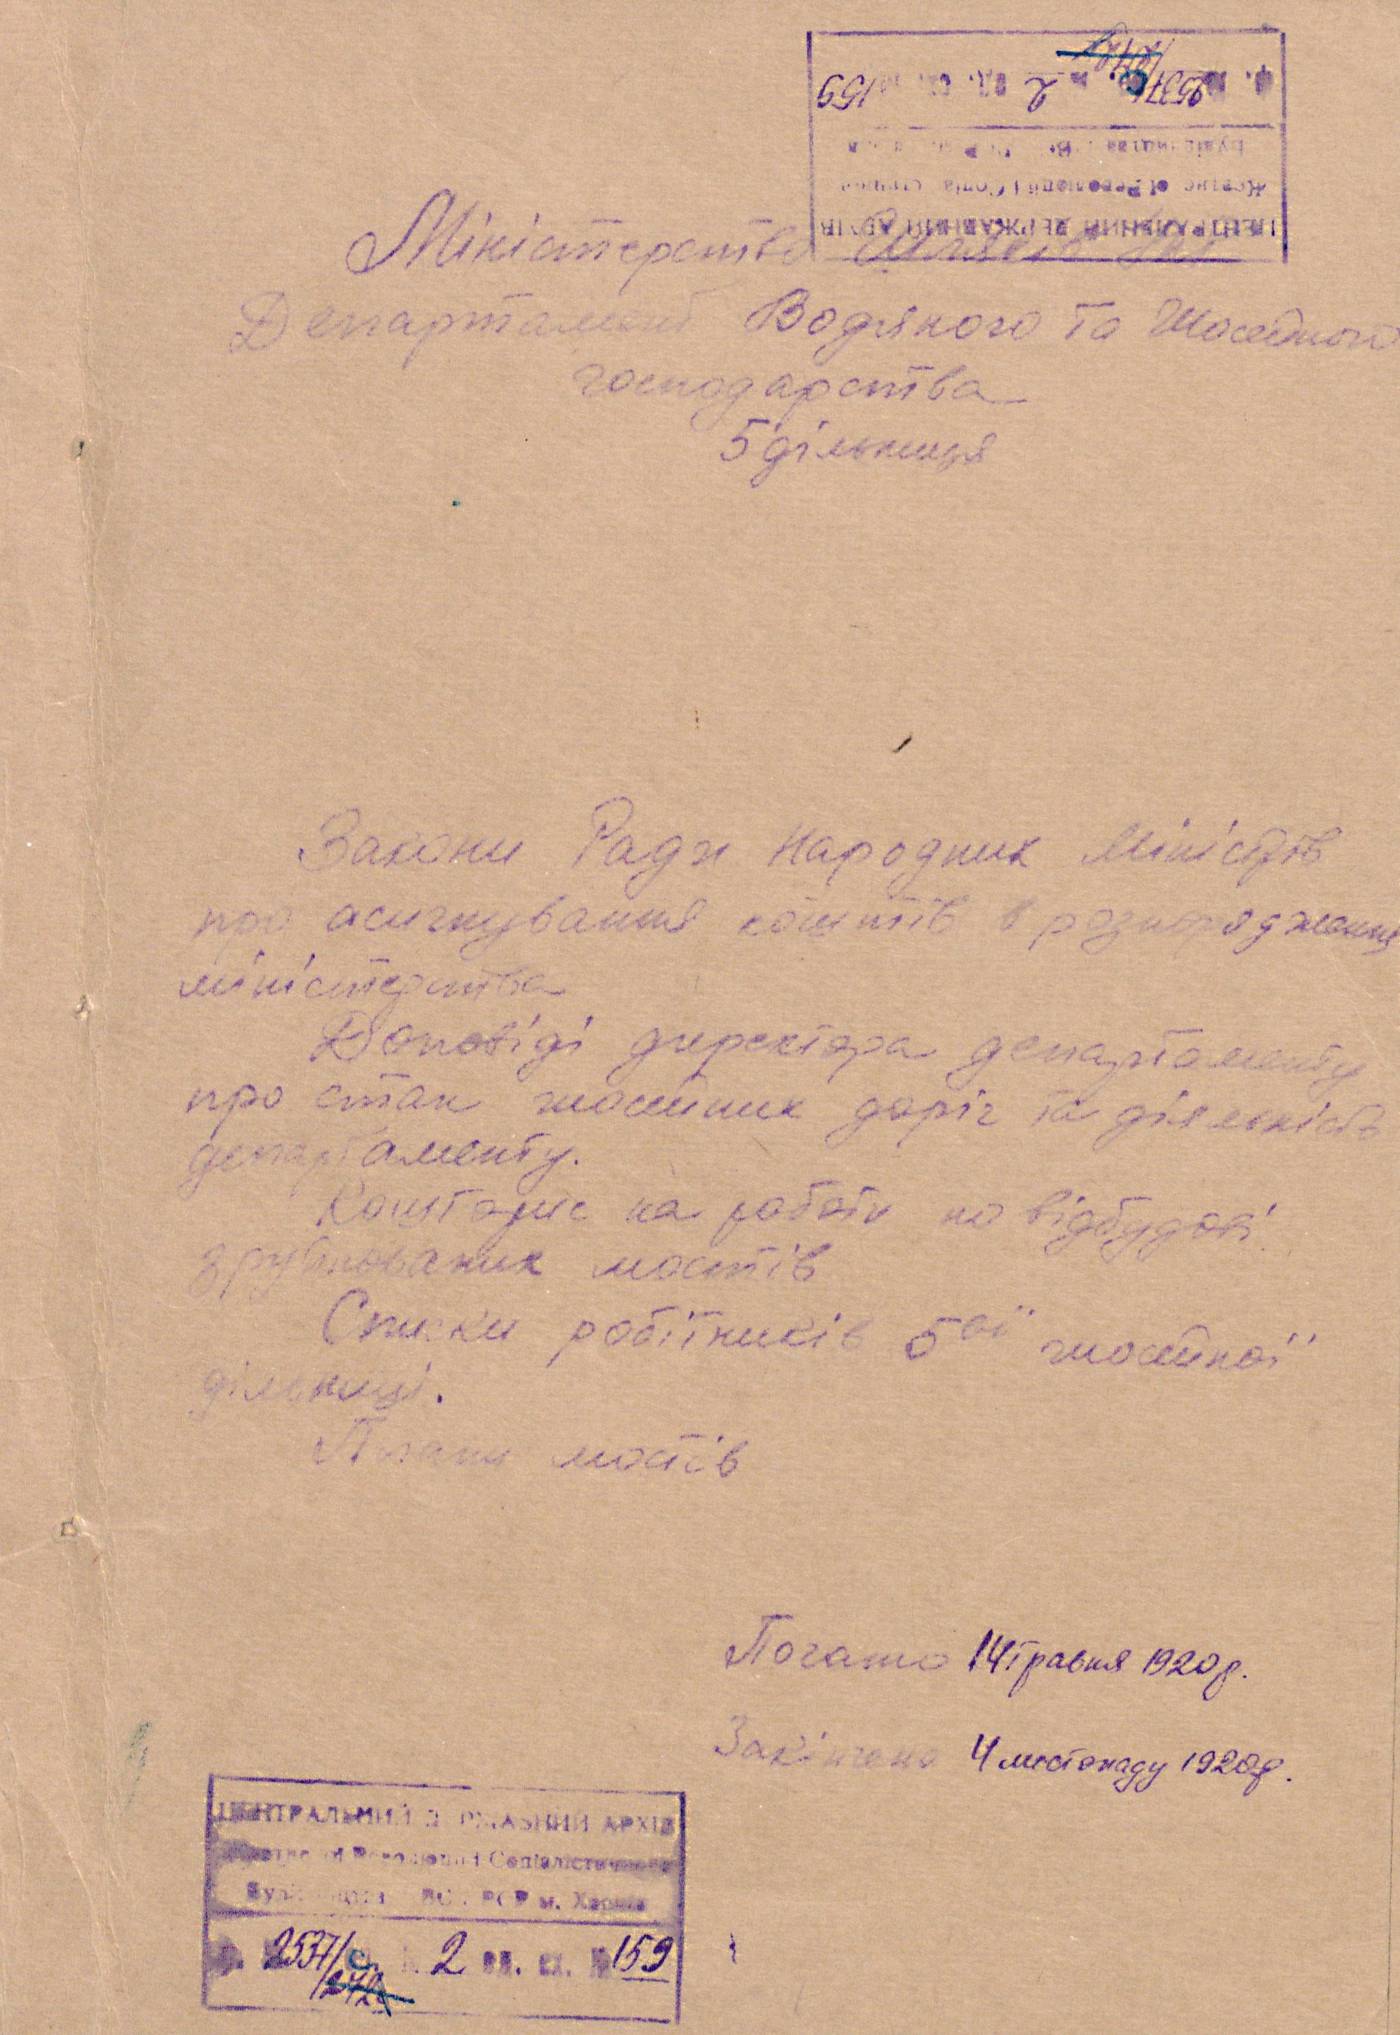 2537/с. 2 159
ЦЕНТРАЛЬНИЙ ДЕРЖАВНИЙ АРХІВ
Міністерство Шляхів
Департамент Водяного та Шосейного
господарства
5 дільниця
Закони Ради Народних Міністрів
про асигнування коштів в розпорядження
міністерства
Доповіді директора департаменту
про стан шосейних доріг та діяльність
департаменту.
Кошторис на роботи по відбудові
зруйнованих мостів
Списки робітників 5ої шосейної
дільниці.
Плани мостів
Почато 14 травня 1920 р.
Закінчено 4 листопаду 1920 р.
ЦЕНТРАЛЬНИЙ ДЕРЖАВНИЙ АРХІВ
Революції і Соціалістичного
Будівництва РСР м. Харків
2537/с. 2 од. зб. № 159